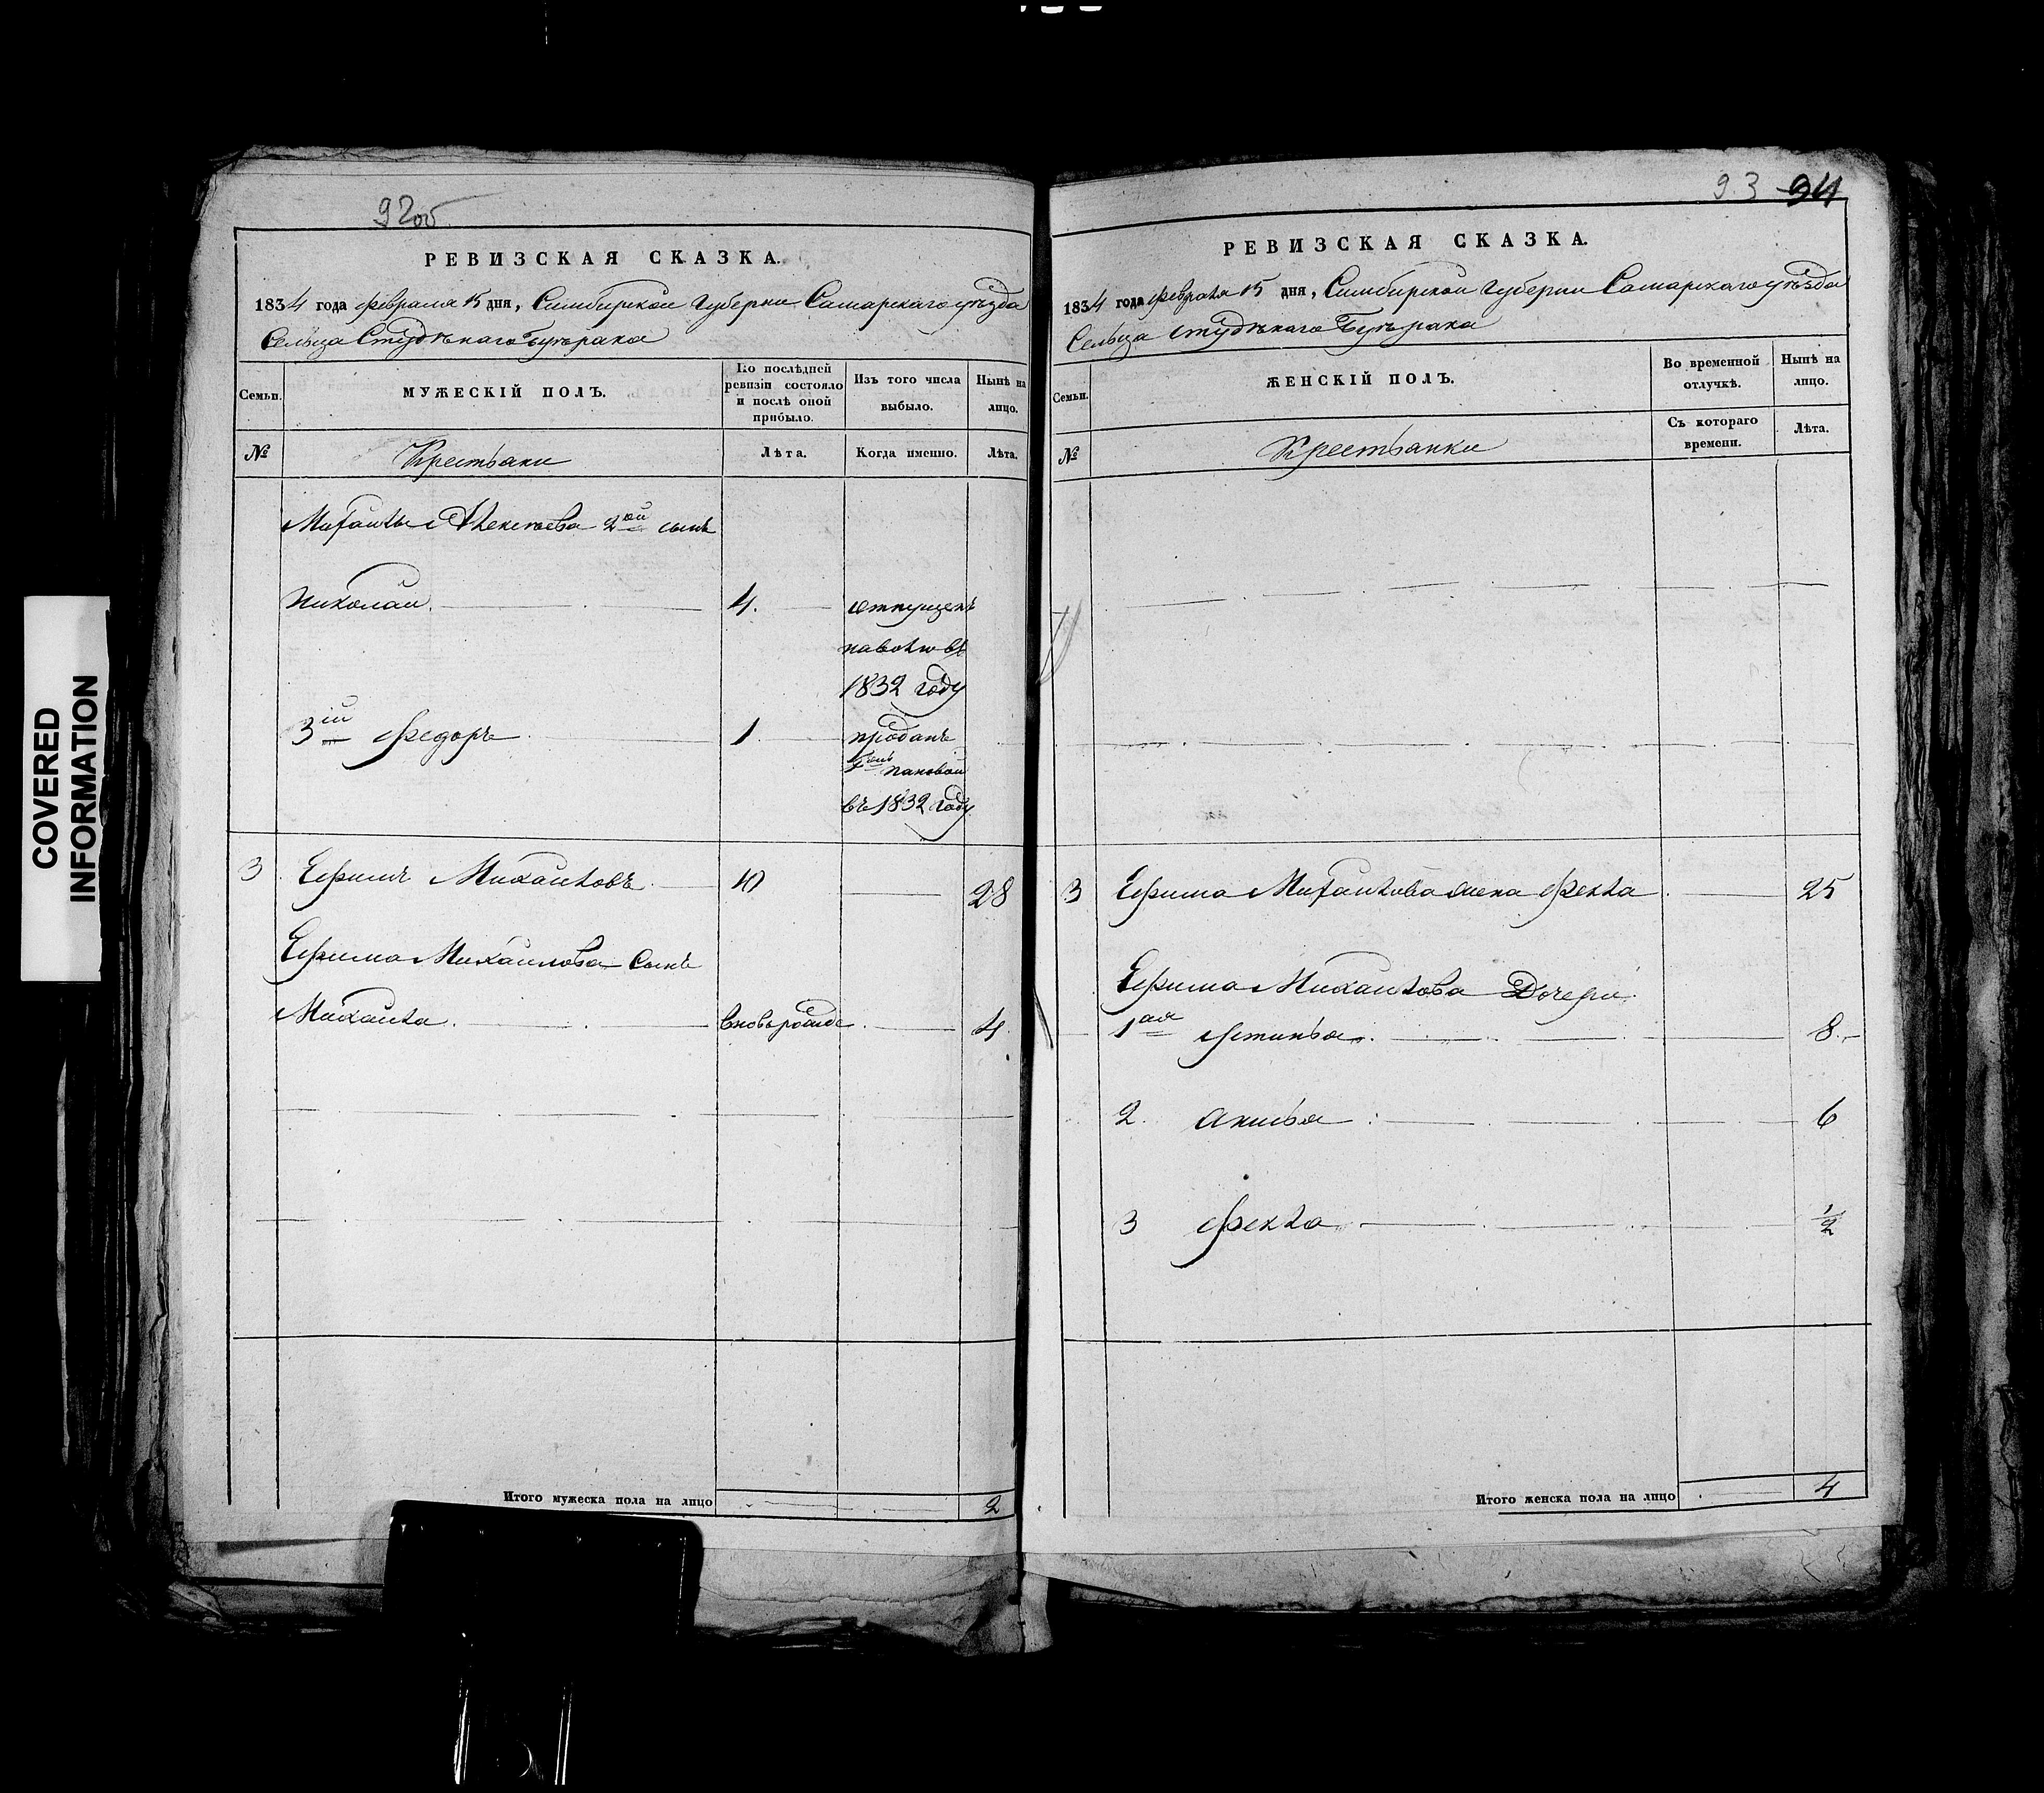 COVERED
INFORMATION
92об
РЕВИЗСКАЯ СКАЗКА.
1834 года февраля 15 дня, Симбирской губернии Самарскаго уѣзда
Сельца Студѣнаго Буерака
Семьи.
МУЖЕСКІЙ ПОЛЪ.
По послѣдней
ревизіи состояло
и послѣ оной
прибыло.
Изъ того числа
выбыло.
Нынѣ на
лицо.
№
Крестьяни
Лѣта.
Когда именно.
Лѣта.
Михаилы Алексѣева 2ой сынъ
Николаи 4. отпущенъ
наволю въ
1832 году
3ій Федоръ 1 проданъ
Пановой
въ 1832 году
3 Ефимъ Михаиловъ 10 28
Ефима Михаилова сынъ
Михаила вновьрожде 4
Итого мужеска пола на лицо 2
93 94
РЕВИЗСКАЯ СКАЗКА.
1834 года февраля 15 дня, Симбирской губернии Самарскаго уѣзда
Сельца Студѣнаго Буерака
Семьи.
ЖЕНСКІЙ ПОЛЪ.
Во временной
отлучкѣ.
Нынѣ на
лицо.
№
Крестьянки
Съ котораго
времени.
Лѣта.
3 Ефима Михаилова жена Фекла 25
Ефима Михаилова Дочери
1ая Устинья 8
2. Анисья 6
3 Фекла 1/2
Итого женска пола на лицо 4